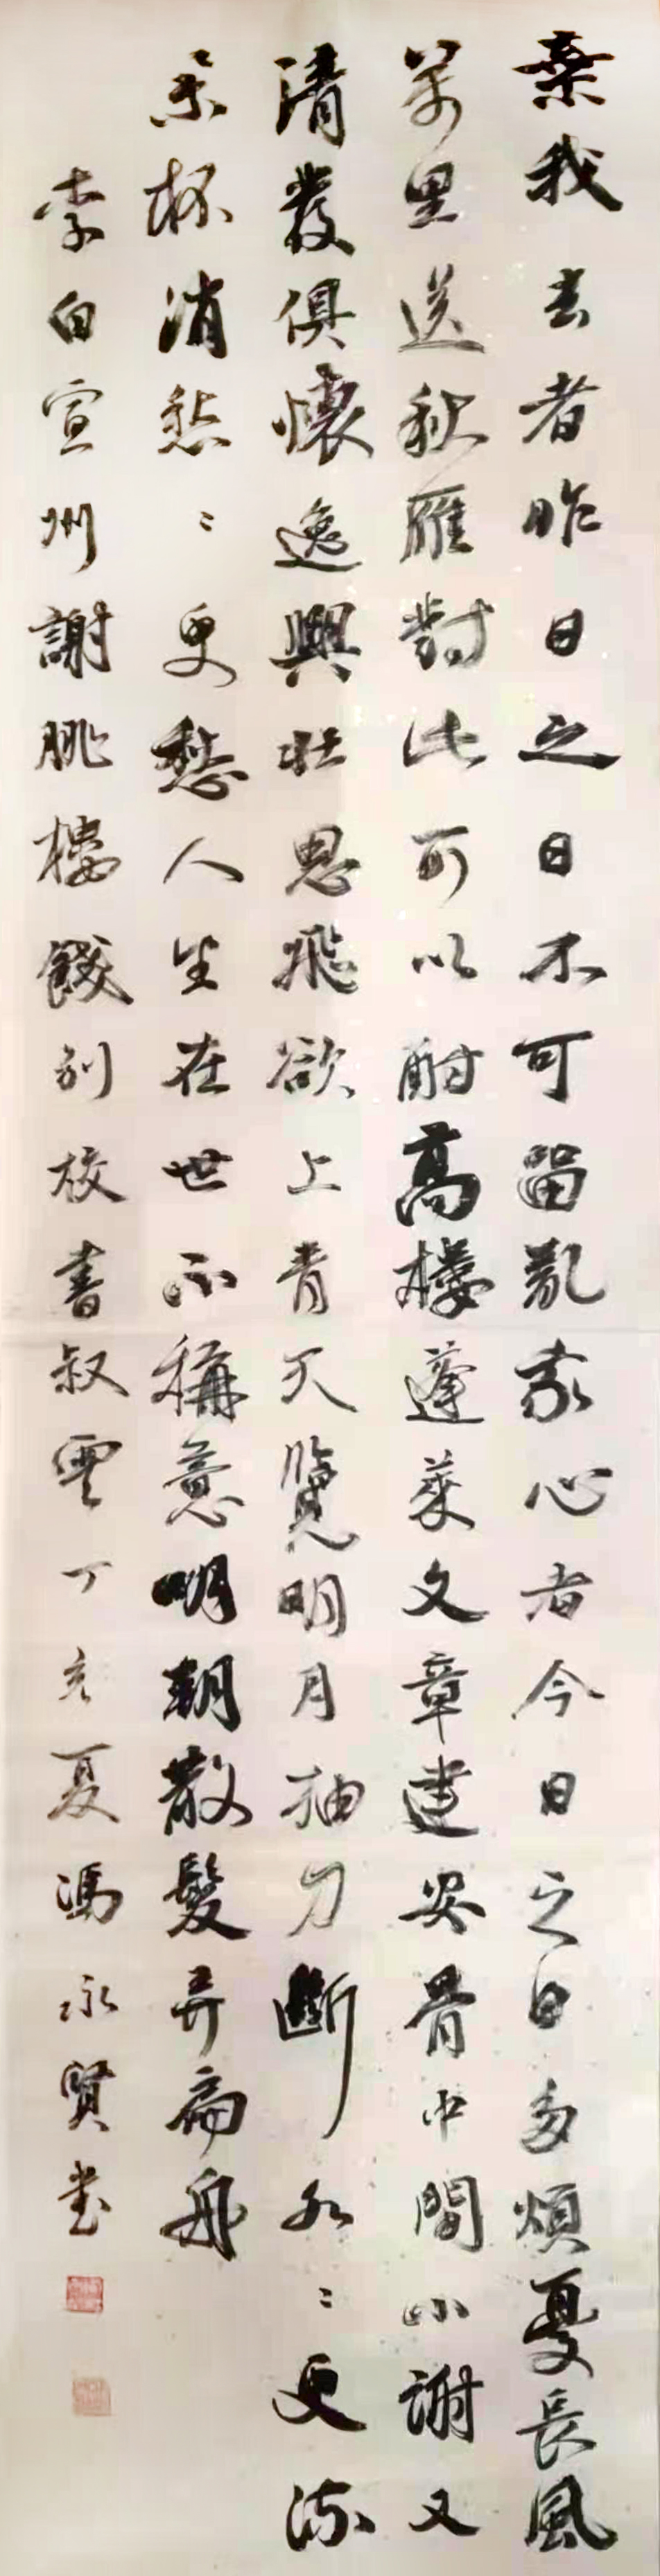 棄我去者昨日之日不可留亂我心者今日之日多煩憂長風
萬里送秋雁對此可以酣高樓蓬萊文章建安骨中間小謝又
清發俱懷逸興壯思飛欲上青天覽明月抽刀斷水〻更流
舉杯消愁〻更愁人生在世不稱意明朝散髮弄扁舟
李白宣州謝朓樓餞別校書叔雲丁亥夏馮永賢書